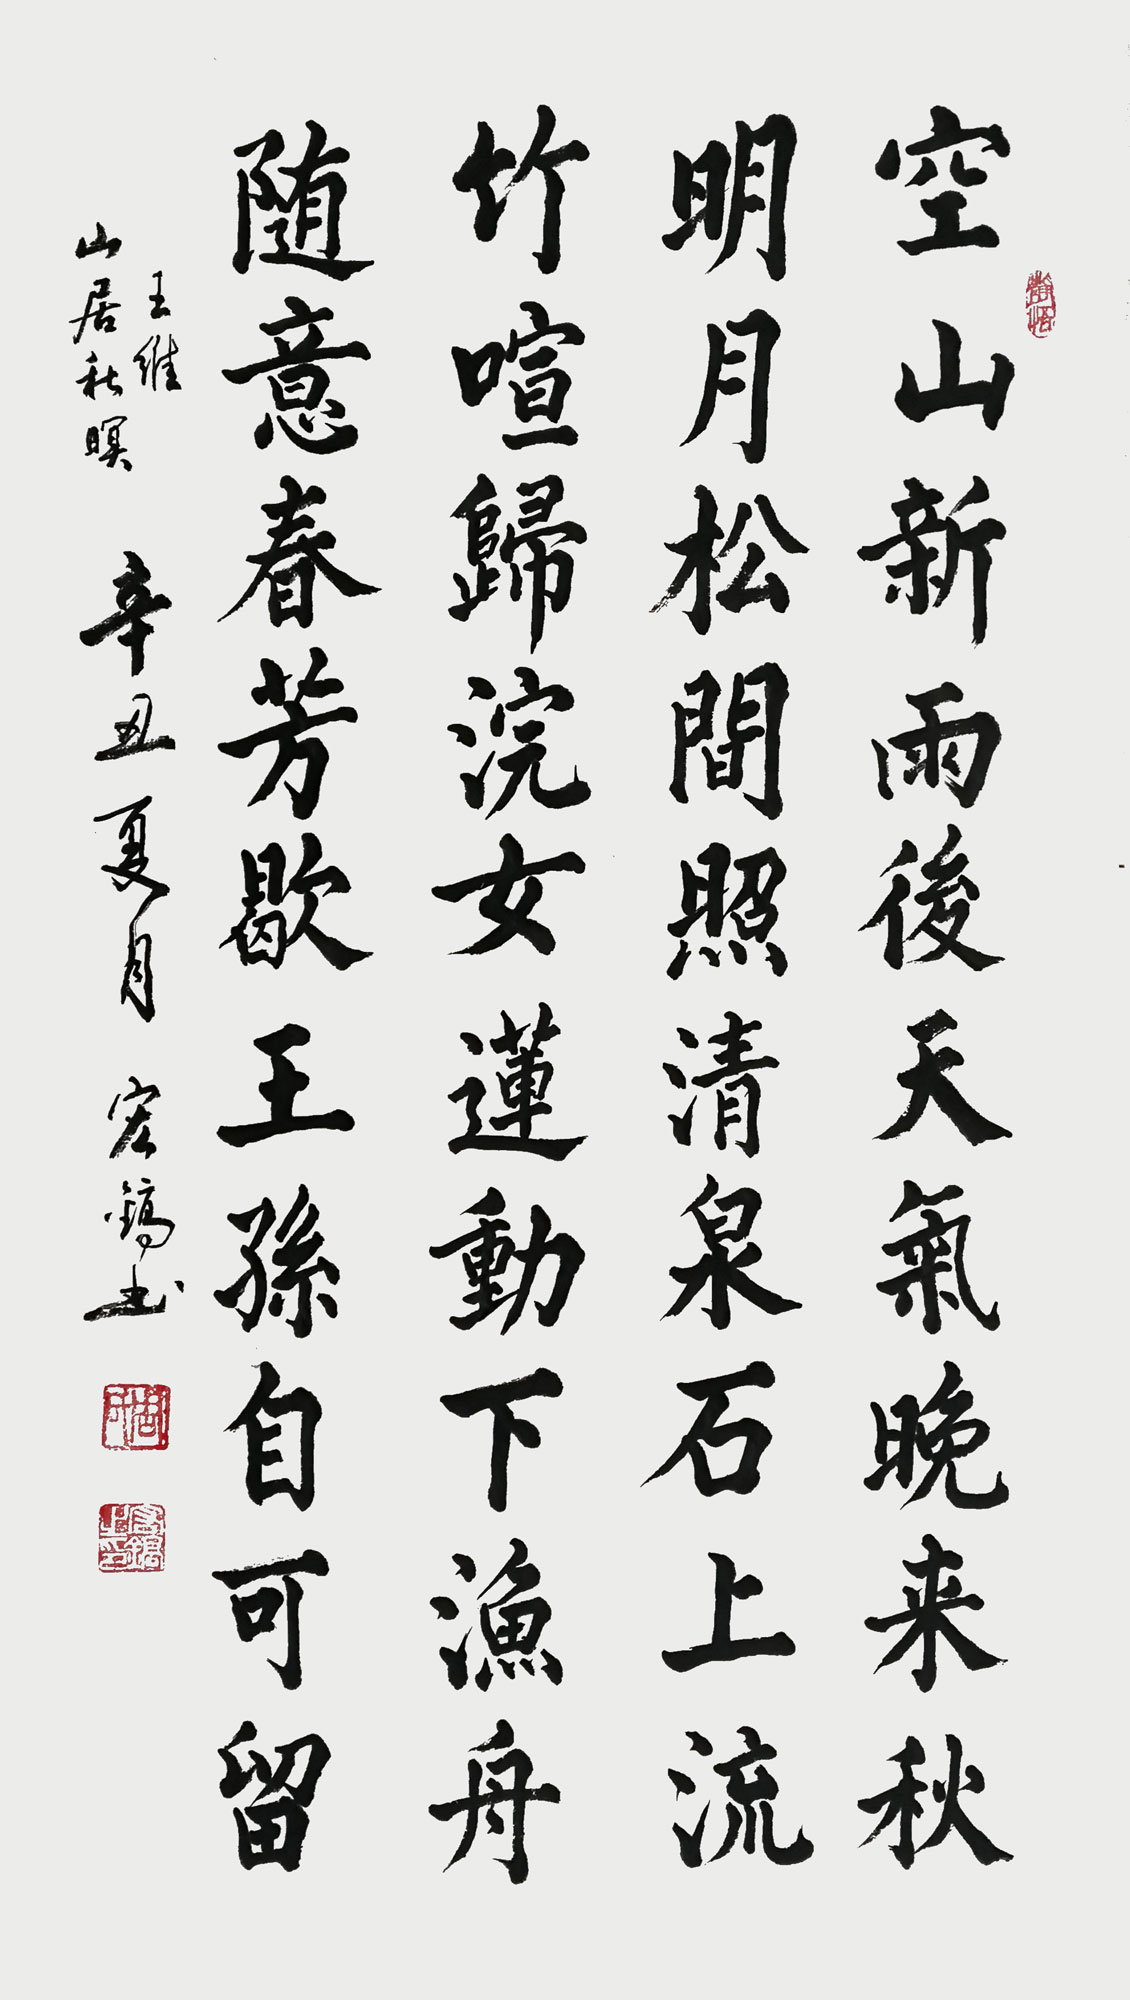 空山新雨後天氣晚来秋
明月松間照清泉石上流
竹喧歸浣女蓮動下漁舟
随意春芳歇王孫自可留
王維
山居秋暝
辛丑夏月宏鎬书